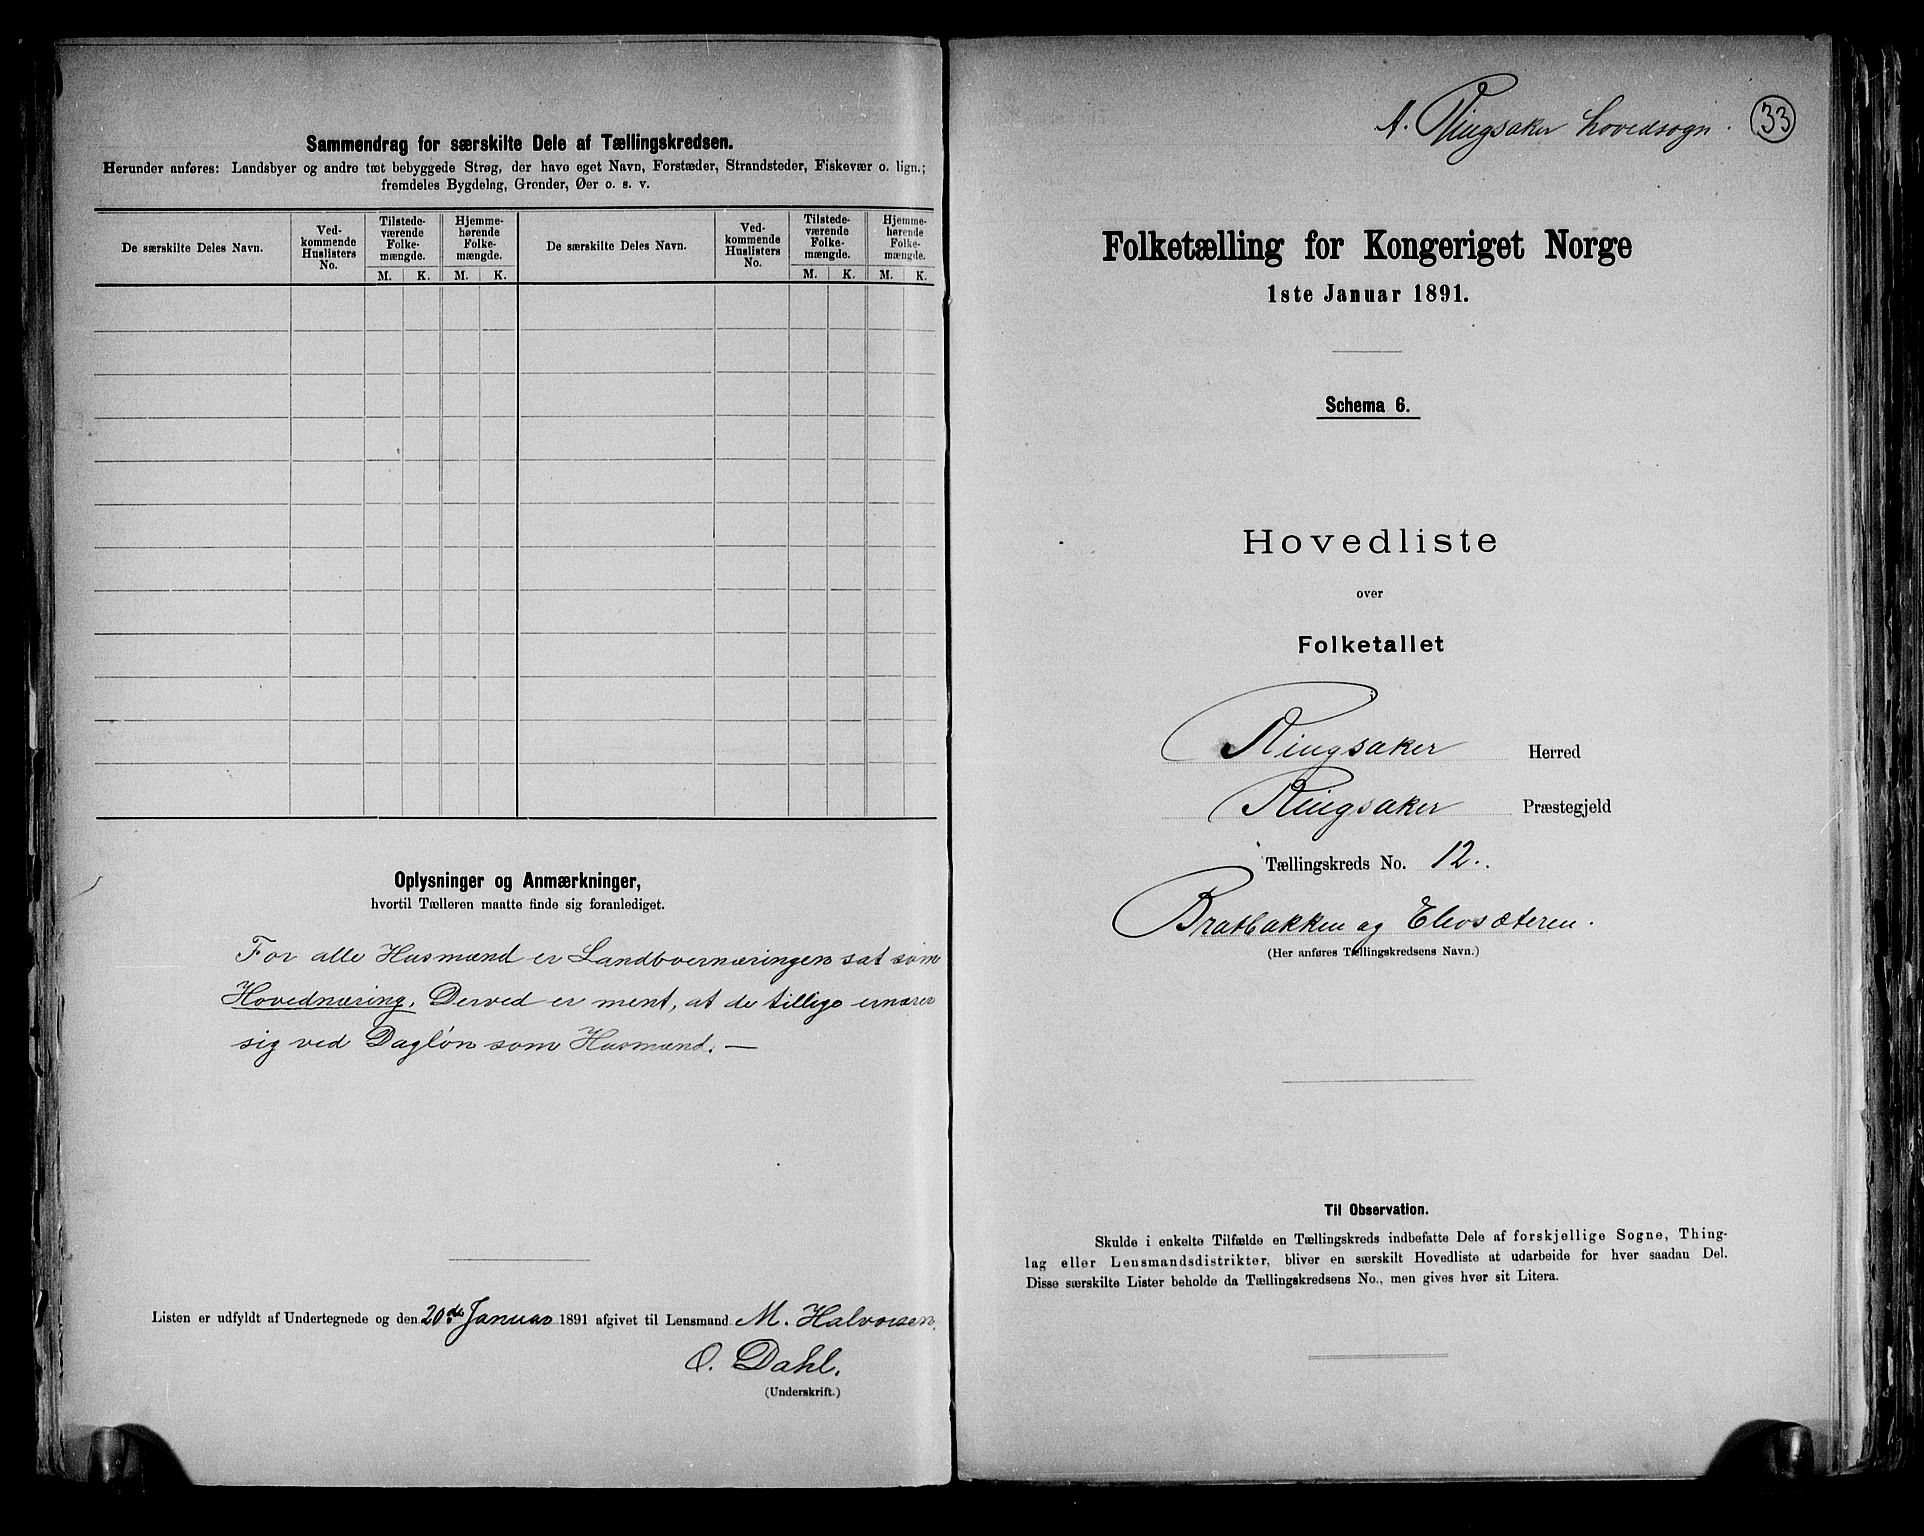 Sammendrag for særskilte Dele af Tællingskredsen.
Herunder anføres: Landsbyer og andre tæt bebyggede Strøg, der have eget Navn, Forstæder, Strandsteder, Fiskevær o. lign.;
fremdeles Bygdelag, Grender, Øer o. s. v.
De særskilte Deles Navn.
Ved-
kommende
Huslisters
No.
Tilstede-
værende
Folke-
mængde.
Hjemme-
hørende
Folke-
mængde.
M. K. M. K.
De særskilte Deles Navn.
Ved-
kommende
Huslisters
No.
Tilstede-
værende
Folke-
mængde.
Hjemme-
hørende
Folke-
mængde.
M. K. M. K.
Oplysninger og Anmærkninger,
hvortil Tælleren maatte finde sig foranlediget.
For alle Husmænd er Landbovernæringen sat som
Hovednæring. Derved er ment, at de tillige ernærer
sig ved Dagløn som Husmænd. —
Listen er udfyldt af Undertegnede og den 20de Januar 1891 afgivet til Lensmand M. Halvorsen.
O. Dahl.
(Underskrift.)
A. Ringsaker hovedsogn. 33
Folketælling for Kongeriget Norge
1ste Januar 1891.
Schema 6.
Hovedliste
over
Folketallet
Ringsaker Herred
Ringsaker Præstegjeld
Tællingskreds No. 12.
Bratbakken og Elvsæteren.
(Her anføres Tællingskredsens Navn.)
Til Observation.
Skulde i enkelte Tilfælde en Tællingskreds indbefatte Dele af forskjellige Sogne, Thing-
lag eller Lensmandsdistrikter, bliver en særskilt Hovedliste at udarbeide for hver saadan Del.
Disse særskilte Lister beholde da Tællingskredsens No., men gives hver sit Litera.